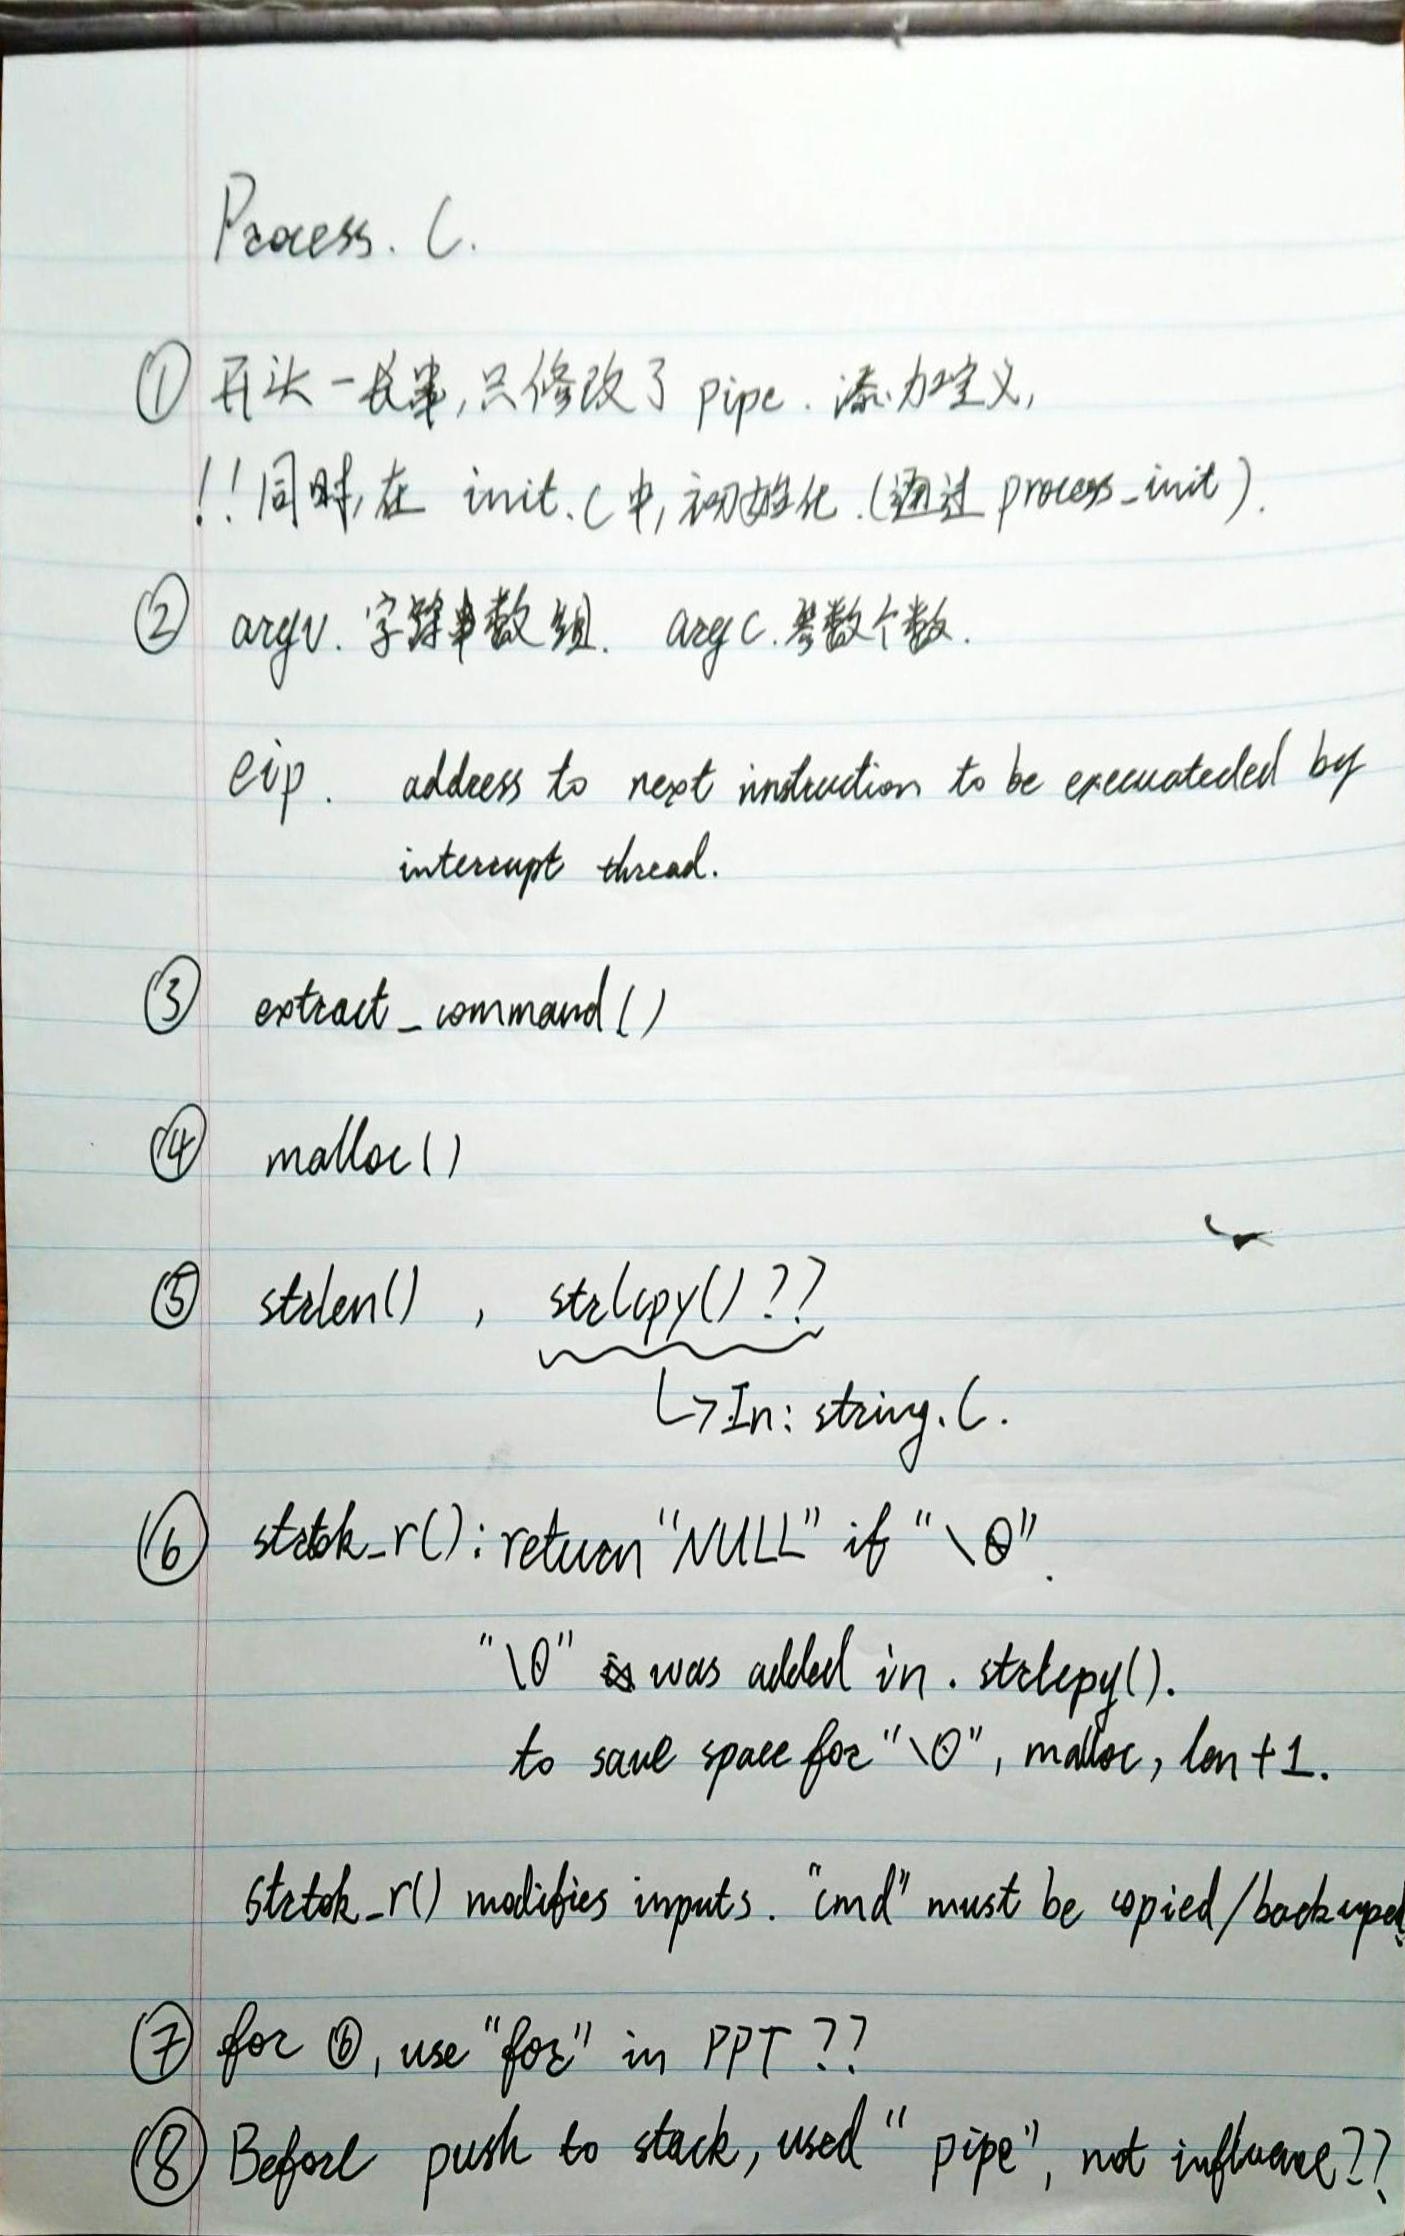 Process. C.
① 开头一长串,只修改了 pipe. 添加定义,
!!同时,在 init.C中,初始化.(通过process_init).
② argv. 字符串数组. argc.参数个数.
eip. address to next instruction to be execuateded by
interrupt thread.
③ extract_command()
④ malloc()
⑤ strlen() , strlcpy()??
↳In: string.C.
⑥ strtok_r(): return "NULL" if "\0".
"\0" was added in. strlcpy().
to save space for "\0", malloc, len+1.
strtok_r() modifies inputs. "cmd" must be copied/backuped.
⑦ for ⑥, use "for" in PPT??
⑧ Before push to stack, used "pipe", not influence??